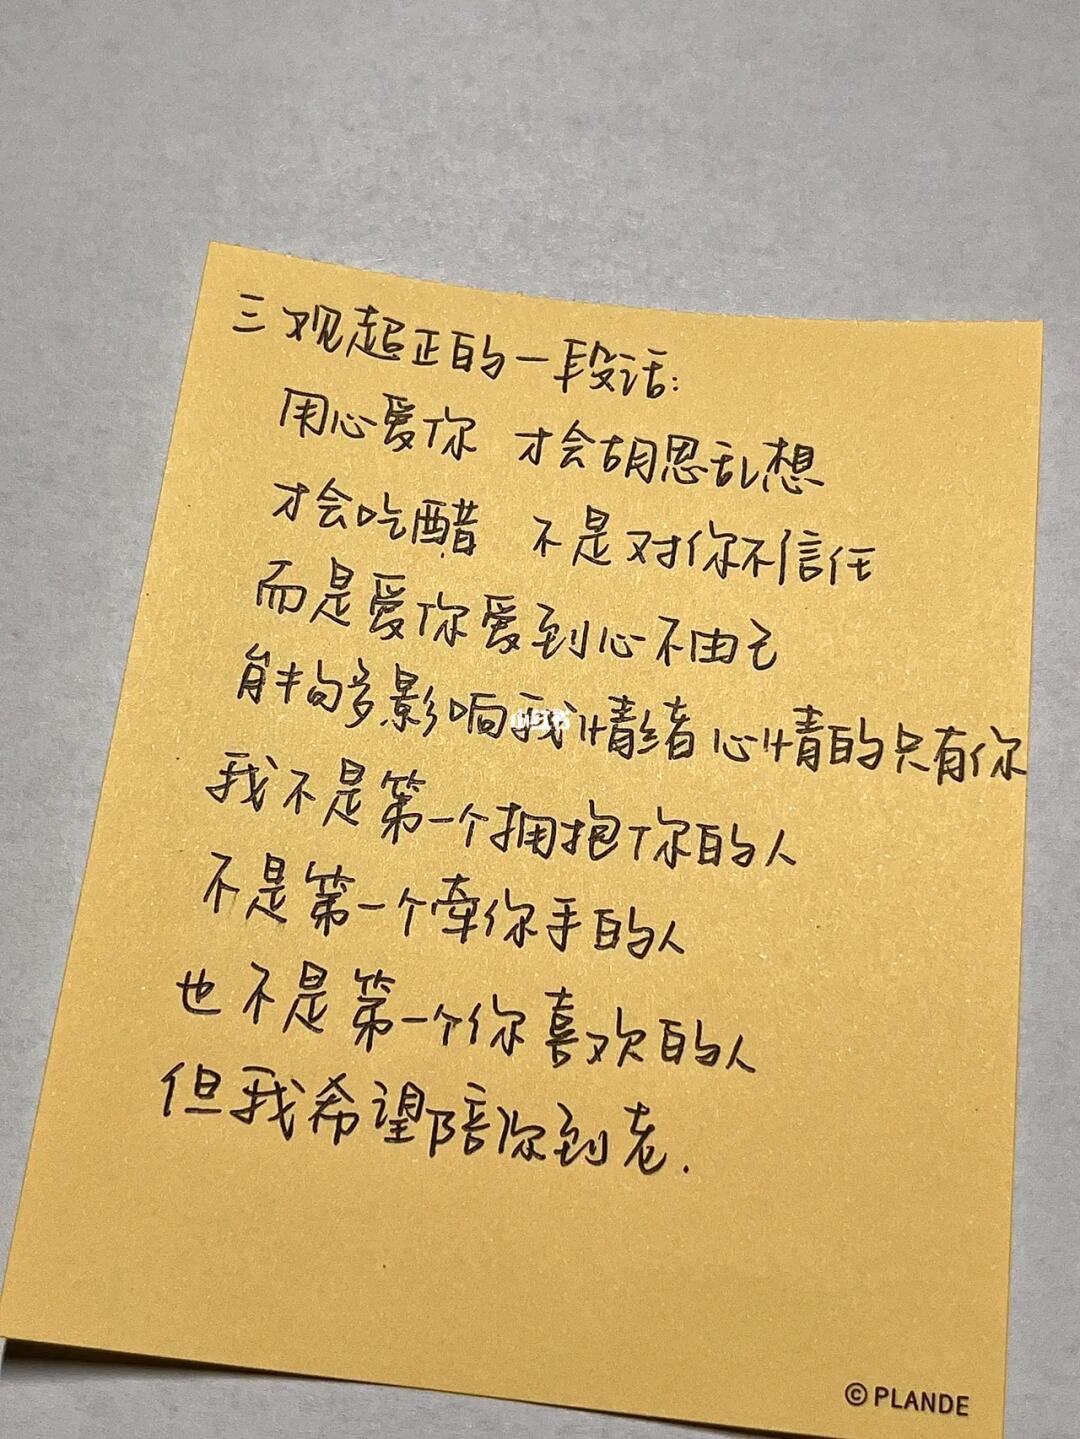 三观起正的一段话:
用心爱你 才会胡思乱想
才会吃醋 不是对你不信任
而是爱你爱到心不由己
能够影响我情绪心情的只有你
我不是第一个拥抱你的人
不是第一个牵你手的人
也不是第一个你喜欢的人
但我希望陪你到老.
小红书
© PLANDE